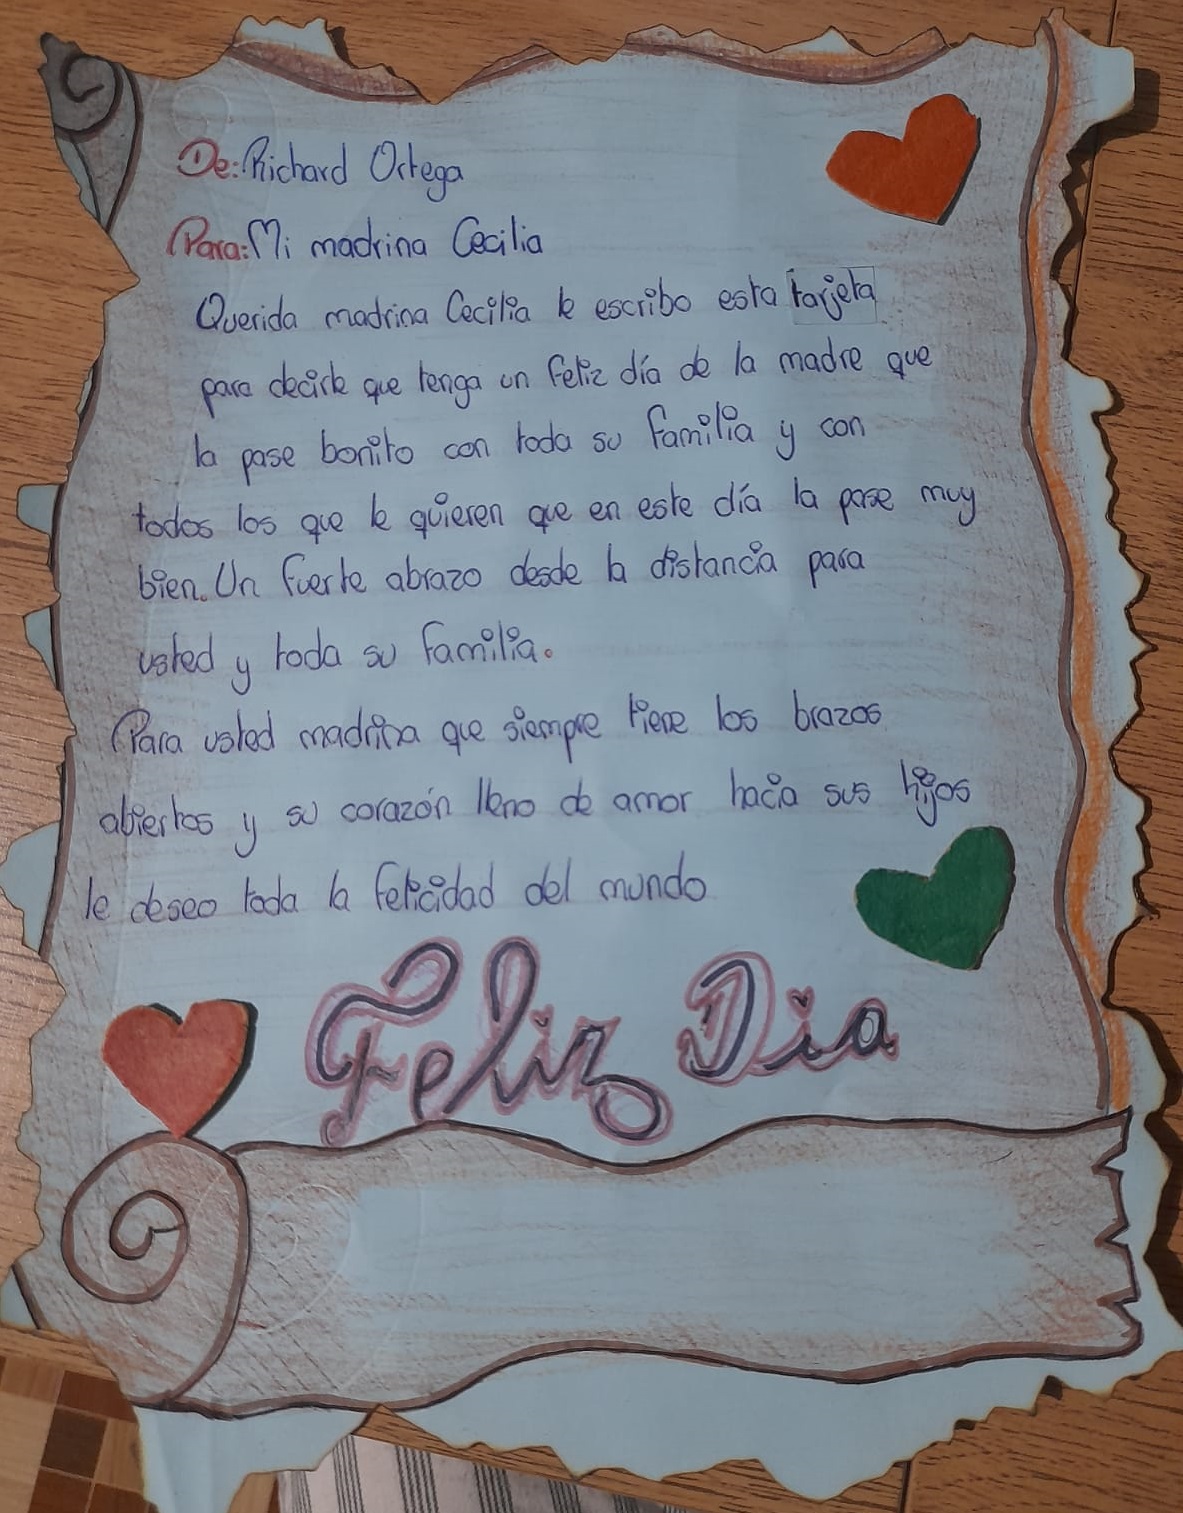 De: Richard Ortega
Para: Mi madrina Cecilia
Querida madrina Cecilia le escribo esta tarjeta
para decirle que tenga un feliz día de la madre que
la pase bonito con toda su familia y con
todos los que le quieren que en este día la pase muy
bien. Un fuerte abrazo desde la distancia para
usted y toda su familia.
Para usted madrina que siempre tiene los brazos
abiertos y su corazón lleno de amor hacia sus hijos
le deseo toda la felicidad del mundo
Feliz Dia